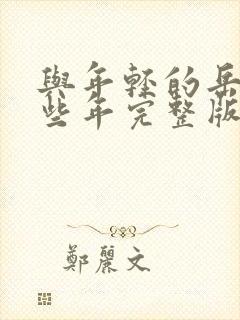 與年輕的岳
些年完整版
鄭麗文